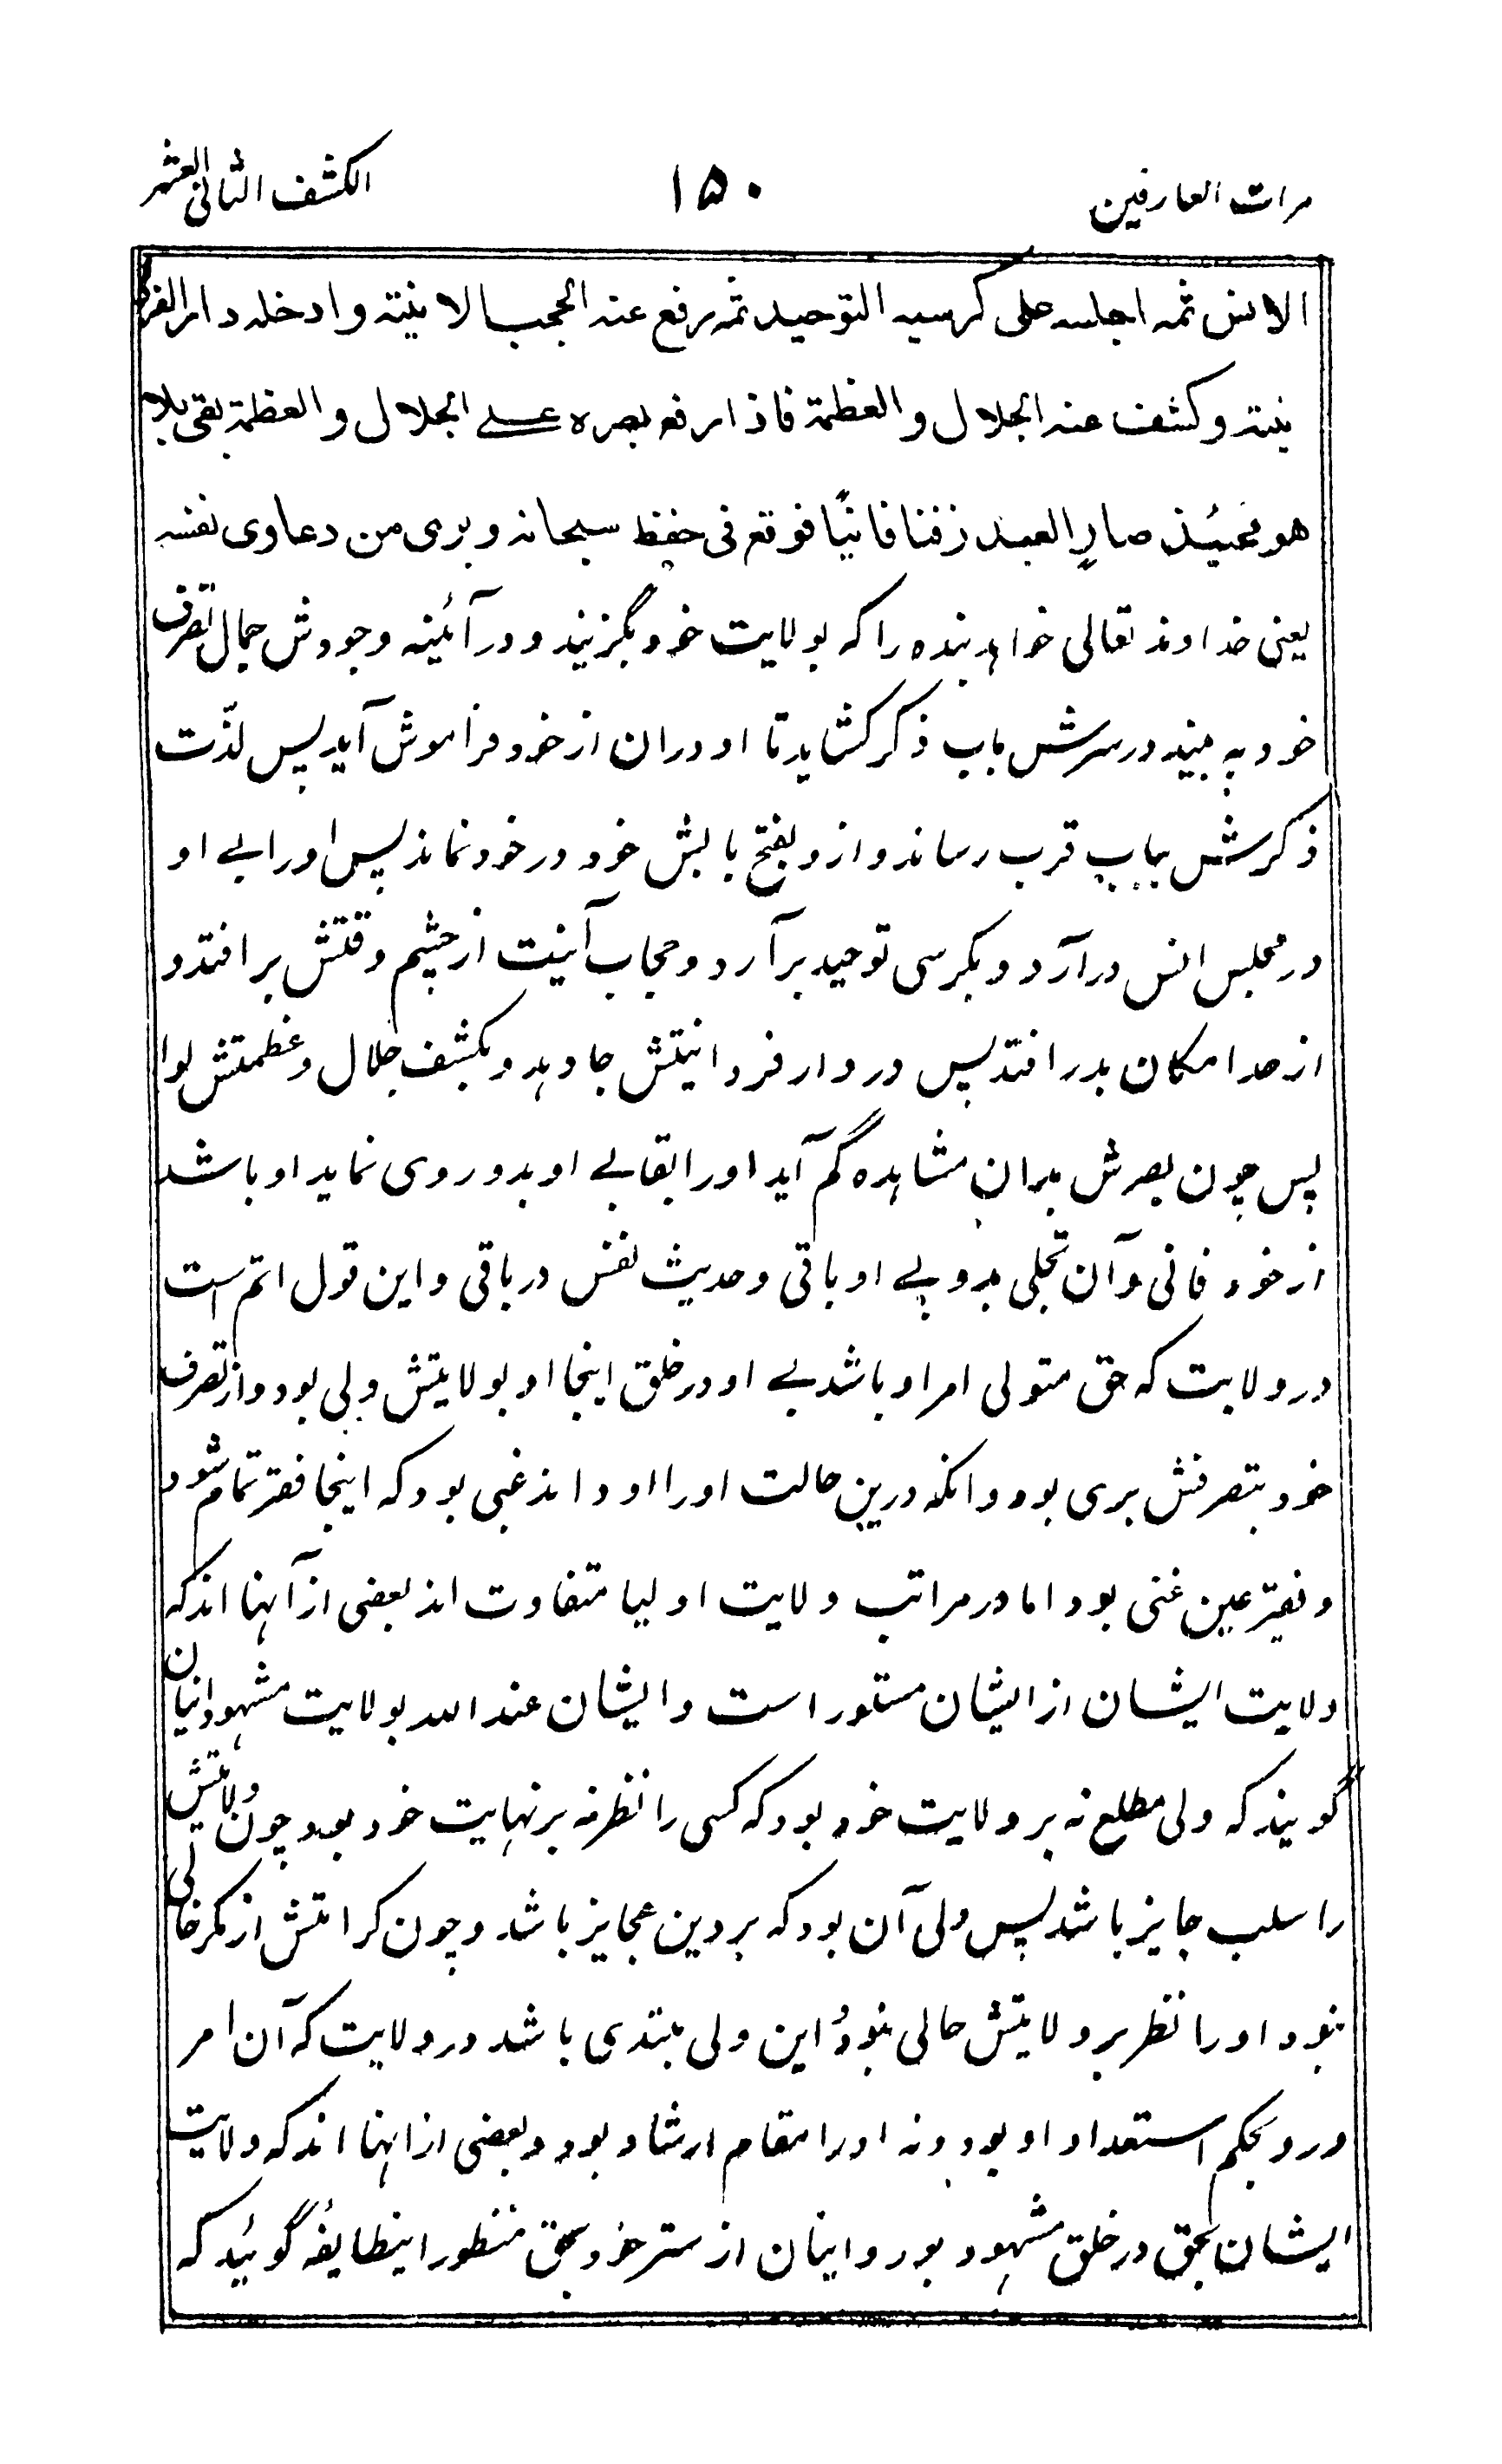 مرات العارفين
۱۵۰
الكشف الثانى العشر
الانس ثمه اجلسه على كرسيه التوحيد ثمه رفع عنه الحجب الانيته وادخله دار الفردا
نيته وكشف عنه الجلال والعظمة فاذا رفع بصره على الجلال والعظمة بقى بلا
هو فحينئذ صار العبد زفنا فانيًا فوقع فى حفظ سبحانه وبرى من دعاوى نفسه
یعنی خداوند تعالی خواهد بنده را که بولایت خود بگزیند و در آئینه وجودش جمال تصرف
خود به بیند در سرش باب ذکر کشاید تا او دران از خود فراموش آید پس لذّت
ذکرش بباب قرب رساند و از و بفتح بابش خود در خود نماند پس او را بے او
در مجلس انس در آرد و بکرسی توحید بر آرد و حجاب آنیت از چشم وقتش بر افتد و
از حد امکان بدر افتد پس در دار فردانیتش جا دهد و بکشف جلال و عظمتش لوا
پس چون بصرش بدان مشاهده گم آید او را بقا بے او بدو روی نماید او باشد
از خود فانی و آن تجلی بدو بے او باقی و حدیث نفس در باقی و این قول اتم است
در ولایت که حق متولی امر او باشد بے او در خلق اینجا او بولایتش ولی بود و از تصرف
خود بتصرفش بری بود و انکه درین حالت او را او داند غبی بود که اینجا فقر تمام شود
و فقیر عین غنی بود اما در مراتب ولایت اولیا متفاوت اند بعضی از آنها اند که
ولایت ایشان از ایشان مستور است و ایشان عند الله بولایت مشهود اینان
گویند که ولی مطلع نه بر ولایت خود بود که کسی را نظر نه بر نهایت خود بود چون ولایتش
را سلب جایز باشد پس ولی آن بود که بر دین عجایز باشد و چون کرامتش از مکر خالی
نبود او را نظر بر ولایتش حالی نبود این ولی مبتدی باشد در ولایت که آن امر
ورو بحکم استعداد او بود و نه او را مقام ارشاد بود و بعضی از انها اند که ولایت
ایشان بحق در خلق مشهود بود و اینان از ستر خود بحق منظور اینطایفه گوئید که